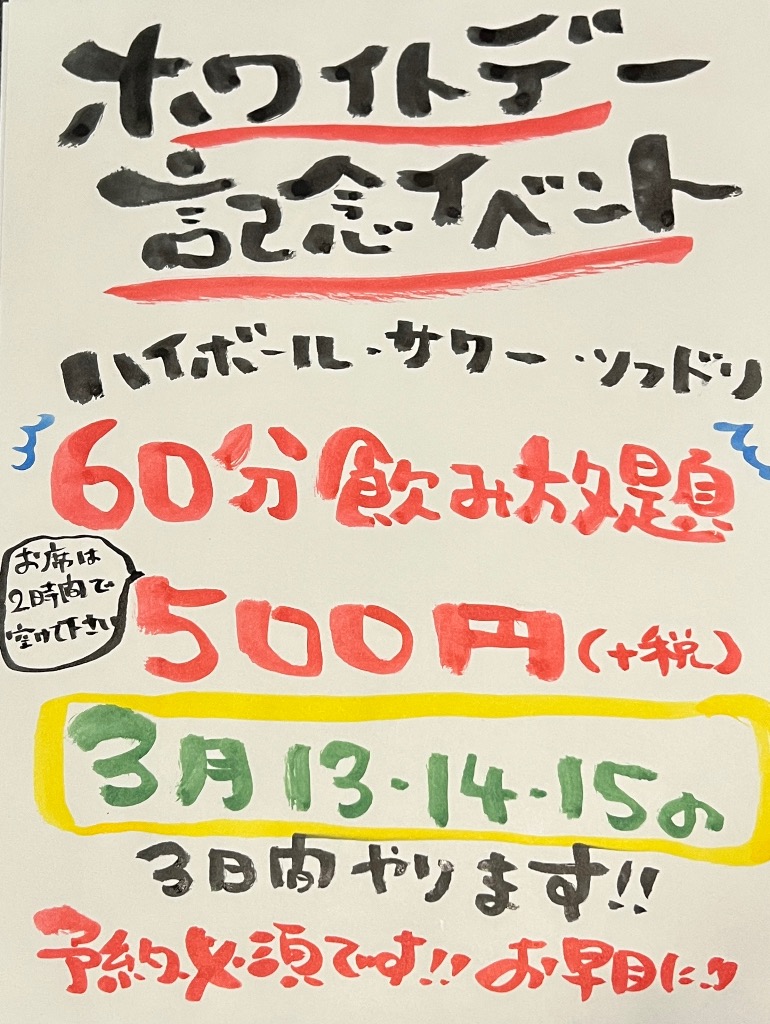 ホワイトデー
記念イベント
ハイボール・サワー・ソフドリ
60分飲み放題
お席は
2時間で
空けて下さい
500円(+税)
3月13・14・15の
3日間やります!!
予約必須です!! お早目に!!